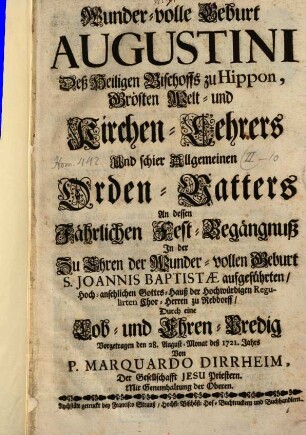 Wunder-volle Geburt
AUGUSTINI
Deß Heiligen Bischoffs zu Hippon,
Grösten Welt- und
Kirchen-Lehrers
Hom. 442
Und schier Allgemeinen
(II-10
Orden-Vatters
An dessen
Jährlichen Fest-Begängnuß
In der
Zu Ehren der Wunder-vollen Geburt
S. JOANNIS BAPTISTÆ aufgeführten/
Hoch-ansehlichen Gottes-Hauß der Hochwürdigen Regu-
lirten Chor-Herren zu Rebdorff/
Durch eine
Lob- und Ehren-Predig
Vorgetragen den 28. August-Monat deß 1721. Jahrs
Von
P. MARQUARDO DIRRHEIM,
Der Gesellschafft JESU Priestern.
Mit Genemhaltung der Oberen.
Eychstätt getruckt bey Francisco Strauß / Hochfl. Bischöfl. Hof-Buchtruckern und Buchhandlern.